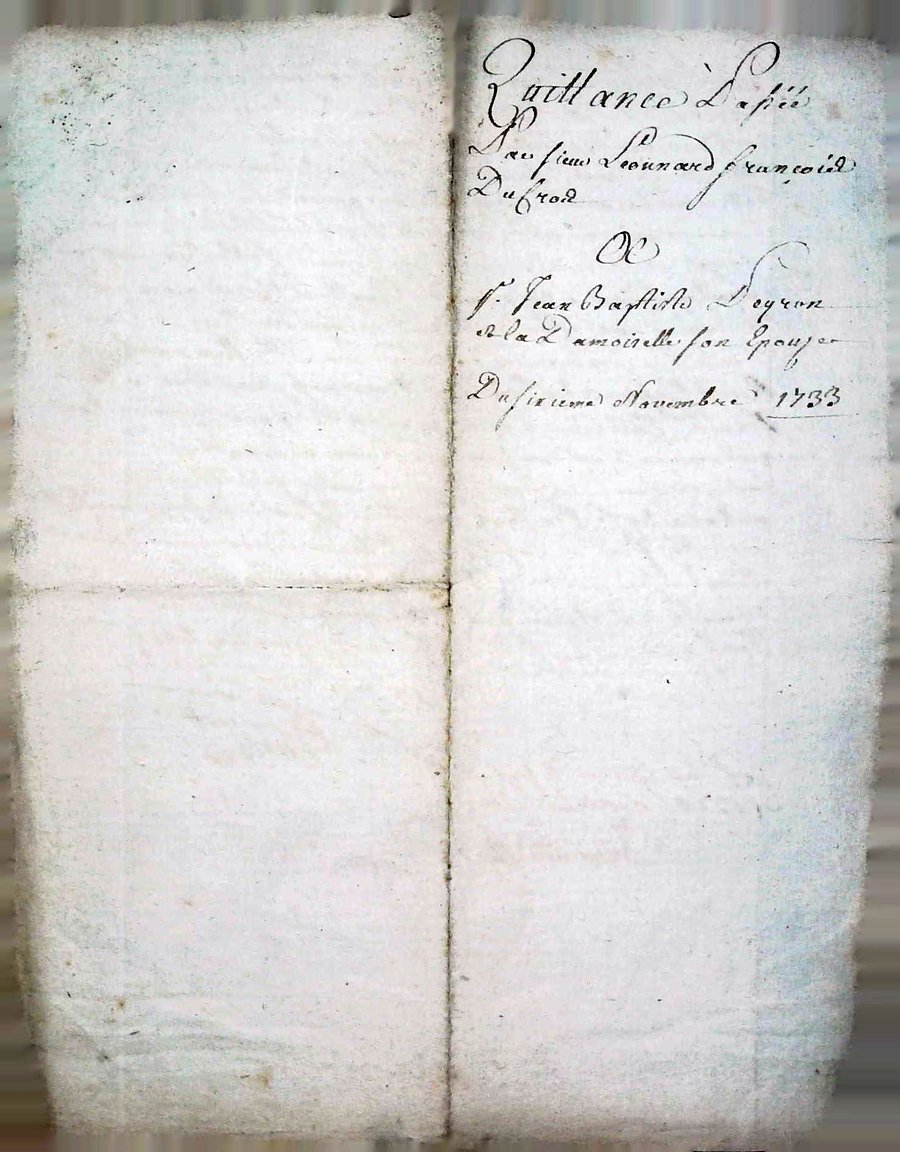 Quittance à Passée
Par sieur Leonnard françois
Ducros
A
Sr. Jean Baptiste Peyron
et la Damoiselle son Epouse
Du sixieme Novembre 1733